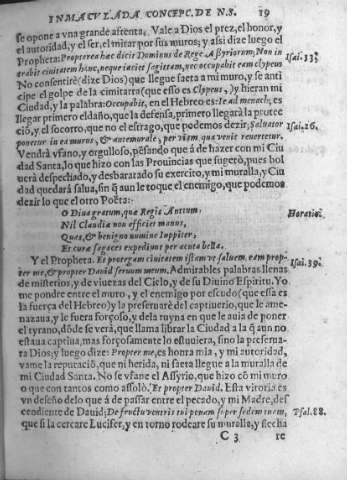 INMACVLADA CONCEPC. DE N.S. 19
se opone a vna grande afrenta. Vale a Dios el prez, el honor, y
el autoridad, y el ser, el mirar por sus muros; y assi dize luego el
Propheta: Propterea hæc dicit Dominus de Rege Assyriorum; Non in Isai. 33.
trabit ciuitatem hanc, neque iaciet sagittam, nec occupabit eam clypeus
No consentirè (dize Dios) que llegue saeta a mi muro, y se anti
cipe el golpe de la cimitarra (que esso es Clypeus,) y hieran mi
Ciudad, y la palabra: Occupabit, en el Hebreo es: Ie ad menach; es
llegar primero el daño, que la defensa, primero llegarà la protec
ciò, y el socorro, que no el estrago, que podemos dezir; Saluator Isai. 26.
ponetur in ea murus, & antemurale; per viam, qua venit reuertetur.
Vendrà vfano, y orgulloso, pẽsando que â de hazer con mi Ciu
dad Santa, lo que hizo con las Prouincias que sugetò, pues bol
uerà despechado, y desbaratado su exercito, y mi muralla, y Ciu
dad quedarà salua, sin q̃ aun le toque el enemigo, que podemos
dezir lo que el otro Poëta:
O Diua gratum, quæ Regis Antium; Horatio.
Nil Claudia non efficiet manus,
Quas, & benigno numine Iuppiter,
Et curæ sagaces expediunt per acuta belli.
Y el Propheta. Et protegam ciuitatem istam vt saluem eam prop- Isai. 39.
ter me, & propter Dauid seruum meum. Admirables palabras llenas
de misterios, y de viuezas del Cielo, y de su Diuino Espiritu. Yo
me pondre entre el muro, y el enemigo por escudo (que essa es
la fuerça del Hebreo) y la preseruarè del captiuerio, que le ame-
nazaua, y le fuera forçoso, y dela ruyna en que le auia de poner
el tyrano, dõde se verà, que llama librar la Ciudad a la q̃ aun no
estaua captiua, mas forçosamente lo estuuiera, sino la preserua-
ra Dios; y luego dize: Propter me, es honra mia, y mi autoridad,
vame la reputaciò, que ni herida, ni saeta llegue a la muralla de
mi Ciudad Santa. No se vfane el Assyrio, que hizo cõ mi muro
o que con tantos como assolò. Et propter Dauid. Esta vitoria es
vn deseño delo que â de passar entre el pecado, y mi Madre, des
cendiente de Dauid; De fructu ventris tui ponam super sedem tuam, Psal. 88.
que si la cercare Lucifer, y en torno rodeare su muralla, y flecha
C 3 re